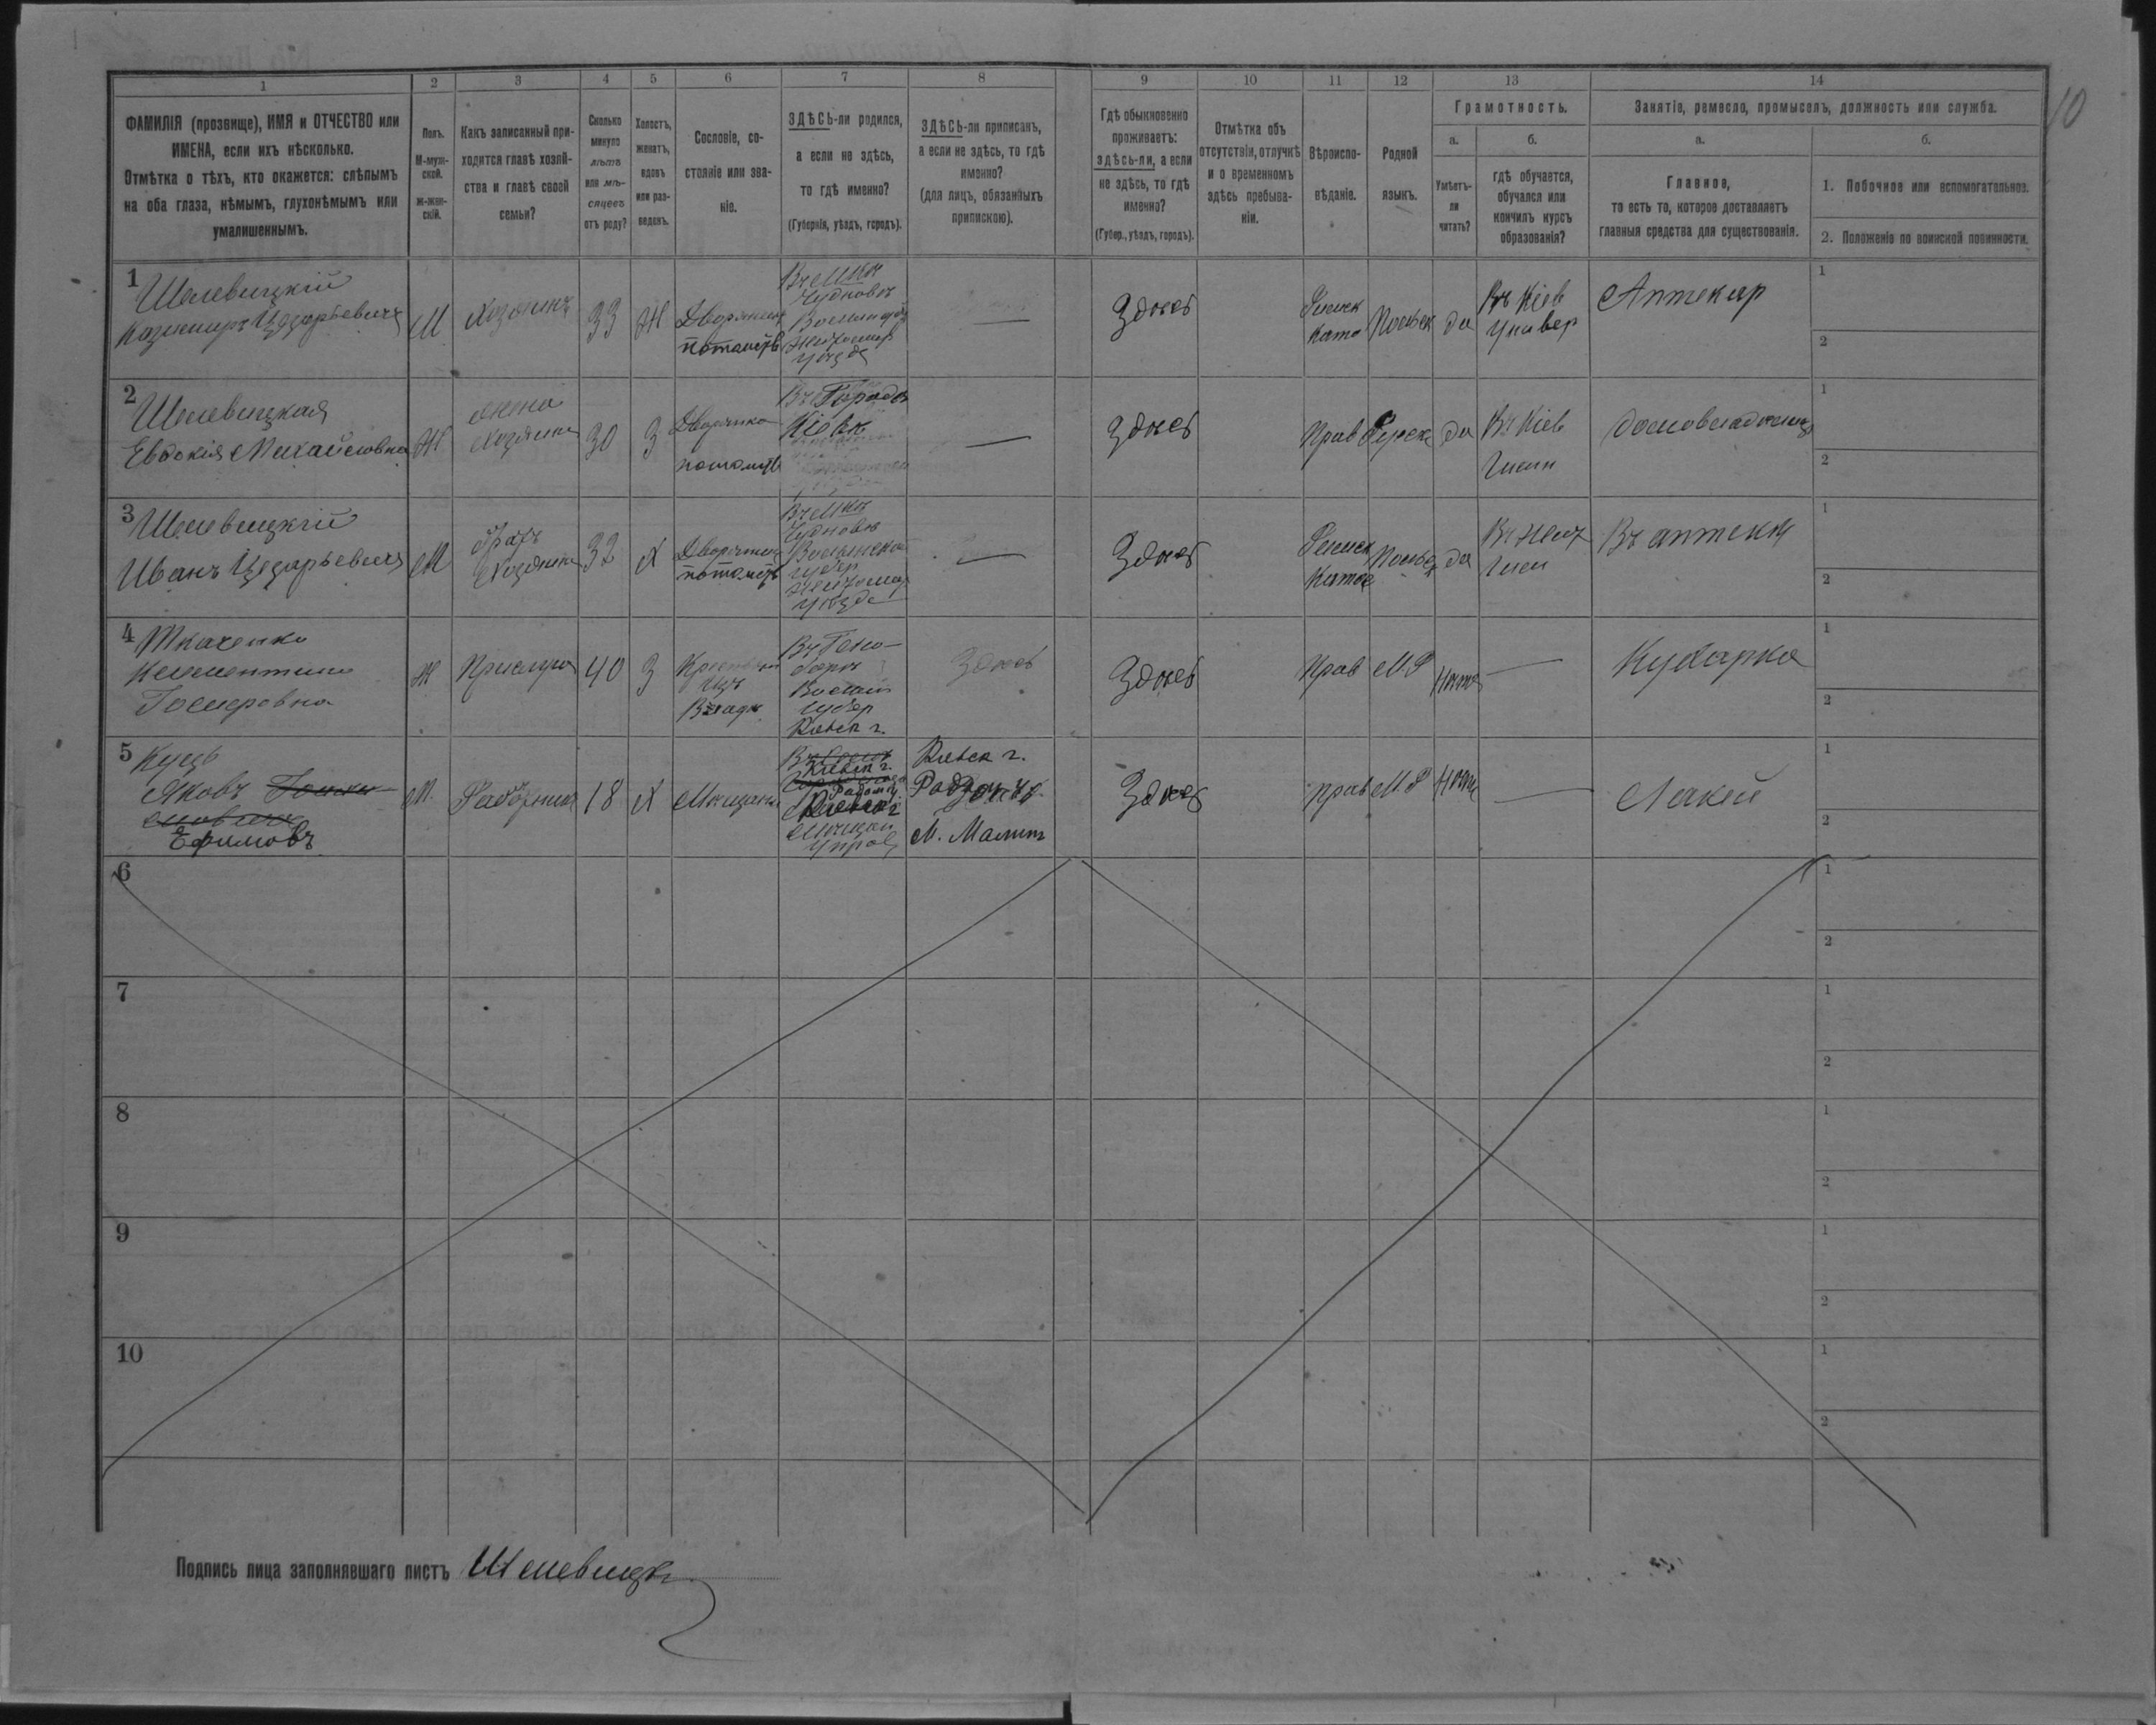 10
1
2
3
4
5
6
7
8
9
10
11
12
13
14
ФАМИЛІЯ (прозвище), ИМЯ и ОТЧЕСТВО или
ИМЕНА, если ихъ нѣсколько.
Отмѣтка о тѣхъ, кто окажется: слѣпымъ
на оба глаза, нѣмымъ, глухонѣмымъ или
умалишеннымъ.
Полъ.
М-муж-
ской.
ж-жен-
скій.
Какъ записанный при-
ходится главѣ хозяй-
ства и главѣ своей
семьи?
Сколько
минуло
лѣтъ
или мѣ-
сяцевъ
отъ роду?
Холостъ,
женатъ,
вдовъ
или раз-
веденъ.
Сословіе, со-
стояніе или зва-
ніе.
ЗДѢСЬ-ли родился,
а если не здѣсь,
то гдѣ именно?
(Губернія, уѣздъ, городъ).
ЗДѢСЬ-ли приписанъ,
а если не здѣсь, то гдѣ
именно?
(для лицъ, обязанныхъ
припискою).
Гдѣ обыкновенно
проживаетъ:
здѣсь-ли, а если
не здѣсь, то гдѣ
именно?
(Губер., уѣздъ, городъ).
Отмѣтка объ
отсутствіи, отлучкѣ
и о временномъ
здѣсь пребыва-
ніи.
Вѣроиспо-
вѣданіе.
Родной
языкъ.
Грамотность.
а.
Умѣетъ-
ли
читать?
б.
гдѣ обучается,
обучался или
кончилъ курсъ
образованія?
Занятіе, ремесло, промыселъ, должность или служба.
а.
Главное,
то есть то, которое доставляетъ
главныя средства для существованія.
б.
1. Побочное или вспомогательное.
2. Положеніе по воинской повинности.
1
Шелевицкій
Казимиръ Цезарьевичъ
М
Хозяинъ
33
Ж
Дворянинъ
потомств
Въ Мѣк
Чудновѣ
Житомир
Уѣзда
—
Здѣсь
Римск
Като
Польск
да
Въ Кіев
Универ
Аптекар
1
2
2
Шелевицкая
Евдокія Михайловна
Ж
жена
Хозяина
30
З
Дворянка
потомств
Въ Городѣ
Кіевѣ
—
Здѣсь
Прав
Русск
да
Въ Кіев
Гимн
домовладѣлица
1
2
3
Шелевицкій
Иванъ Цезарьевичъ
М
братъ
Хозяина
32
Х
Дворянин
потомств
Въ Мѣк
Чудновѣ
Волынской
губер
Житомир
Уѣзда
—
Здѣсь
Римск
Катол
Польск
да
Въ Жит
Гимн
Въ аптекѣ
1
2
4
Ткаченко
Клементина
Ж
Прислуга
40
З
Волын
губер
Кіевск г.
Здѣсь
Здѣсь
Прав
МР
Нѣтъ
—
Кухарка
1
2
5
Куць
Яковъ
Ефимовъ
М.
18
Х
Мѣщанинъ
Кіевск г.
Радомы
Кіевск г.
М. Малинъ
Здѣсь
прав
МР
Нѣтъ
—
Лакей
1
2
6
1
2
7
1
2
8
1
2
9
1
2
10
1
2
Подпись лица заполнявшаго листъ Шелевицкі